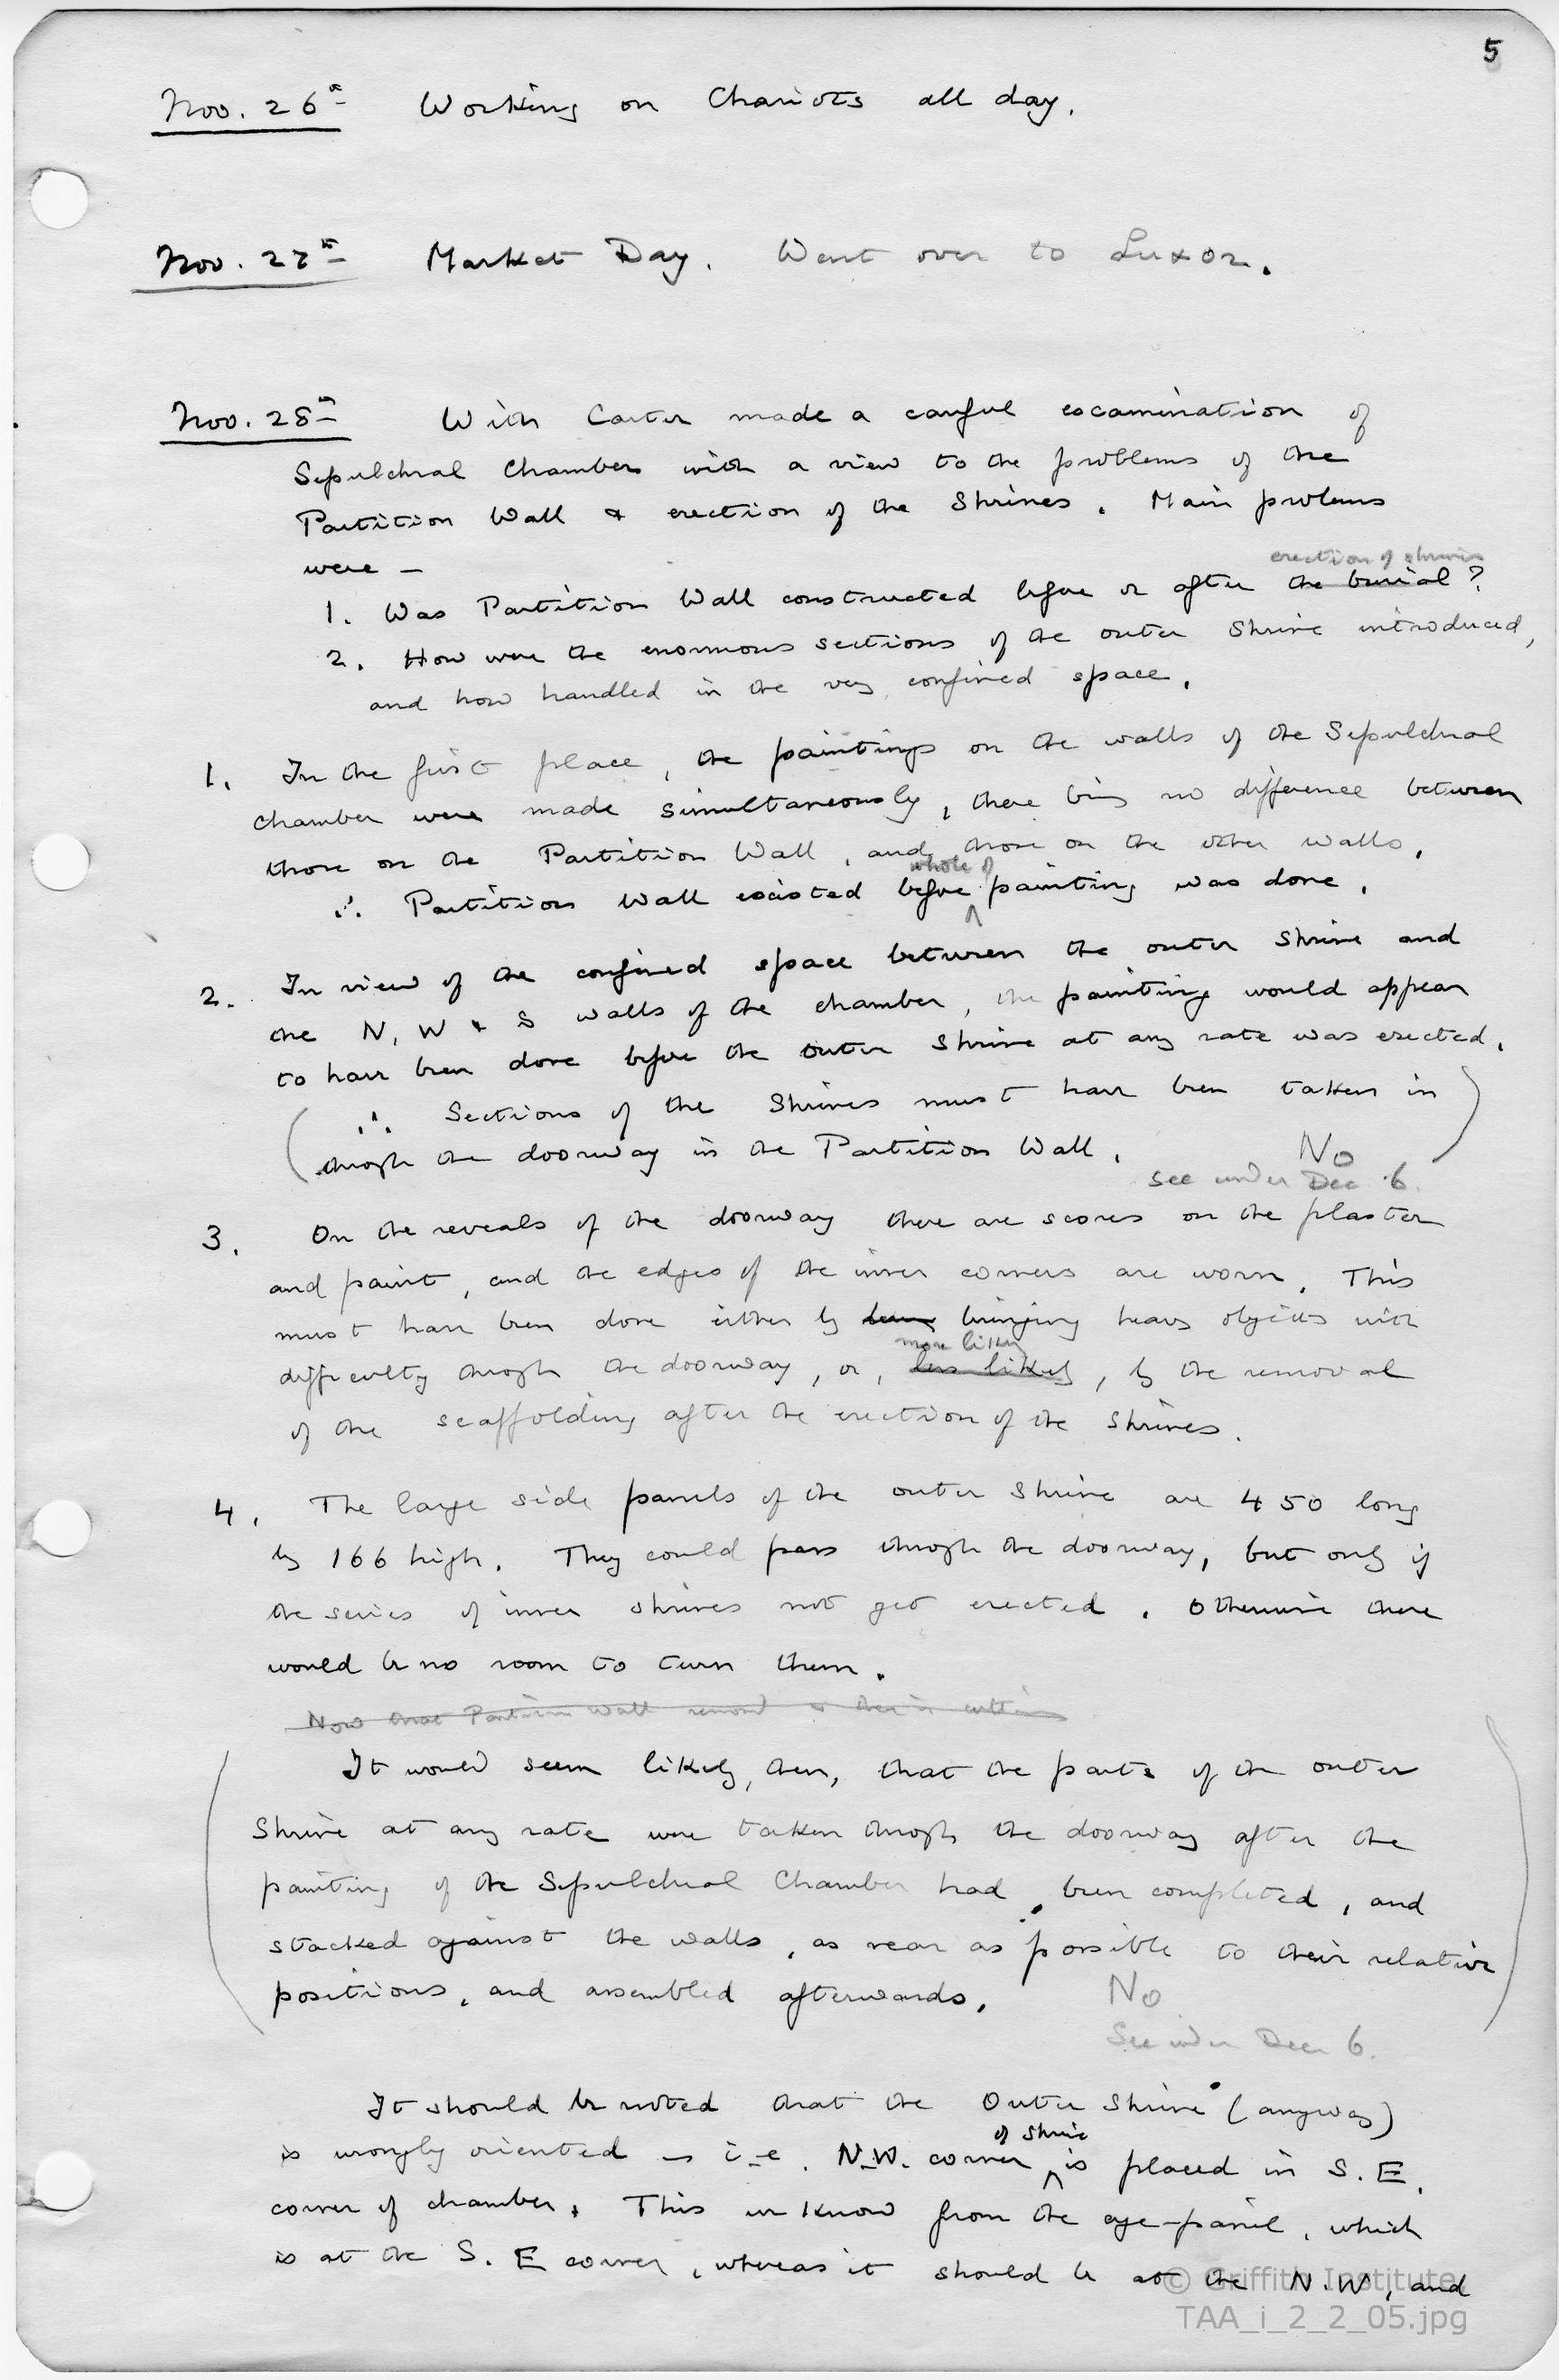 5
Nov. 26th Working on Chariots all day.
Nov. 27th Market Day. Went over to Luxor.
Nov. 28th With Carter made a careful examination of
Sepulchral Chamber with a view to the problems of the
Partition Wall & erection of the Shrines. Main problems
were —
erection of shrines
1. Was Partition Wall constructed before or after the burial?
2. How were the enormous sections of the outer Shrine introduced,
and how handled in the very confined space.
1. In the first place, the paintings on the walls of the Sepulchral
chamber were made simultaneously, there being no difference between
those on the Partition Wall, and those on the other walls.
whole of
∴ Partition Wall existed before ^ painting was done.
2. In view of the confined space between the outer Shrine and
the N, W & S walls of the chamber, the painting would appear
to have been done before the outer Shrine at any rate was erected.
(∴ Sections of the Shrines must have been taken in
through the doorway in the Partition Wall.) No
see under Dec 6.
3. On the reveals of the doorway there are scores on the plaster
and paint, and the edges of the inner corners are worn. This
must have been done either by bringing heavy objects with
more likely
difficulty through the doorway, or, less likely, by the removal
of the scaffolding after the erection of the shrines.
4. The large side panels of the outer Shrine are 450 long
by 166 high. They could pass through the doorway, but only if
the series of inner shrines not yet erected. Otherwise there
would be no room to turn them.
Now that Partition Wall removed
(It would seem likely, then, that the parts of the outer
Shrine at any rate were taken through the doorway after the
painting of the Sepulchral Chamber had been completed, and
stacked against the walls, as near as possible to their relative
positions, and assembled afterwards.) No
See under Dec 6.
It should be noted that the Outer Shrine (anyway)
of Shrine
is wrongly oriented — i.e. N.W. corner ^ is placed in S.E.
corner of chamber. This we know from the eye-panel, which
is at the S.E corner, whereas it should be at the N.W, and
© Griffith Institute
TAA_i_2_2_05.jpg